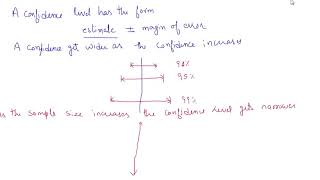 A confidence level has the form
estimate ± margin of error
A confidence get wider as the confidence increases
90%
95%
99%
as the sample size increases the confidence level gets narrower